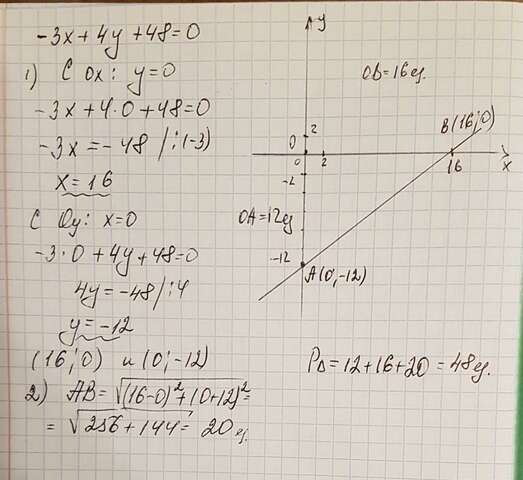 -3x+4y+48=0
1) С ОХ: y=0
-3x+4·0+48=0
-3x=-48 /:(-3)
x=16
С Оу: x=0
-3·0+4y+48=0
4y=-48/:4
y=-12
(16;0) и (0;-12)
2) AB=√(16-0)²+(0+12)²=
=√256+144=20 ед.
y
OB=16ед.
B(16;0)
0 2
0 2 16 x
-2
OA=12ед
-12
A(0;-12)
P∆=12+16+20=48ед.